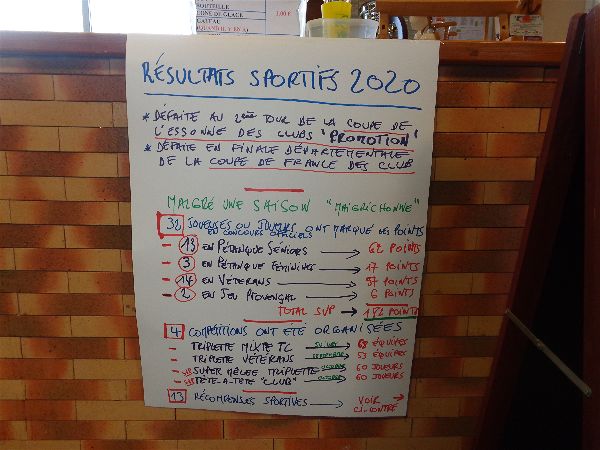 BOUTEILLE
CÔNE DE GLACE 1,00 €
GATEAU
(QUAND IL Y EN A)
RÉSULTATS SPORTIFS 2020
* DÉFAITE AU 2ème TOUR DE LA COUPE DE
L'ESSONNE DES CLUBS "PROMOTION"
* DÉFAITE EN FINALE DÉPARTEMENTALE
DE LA COUPE DE FRANCE DES CLUB
MALGRÉ UNE SAISON "MAIGRICHONNE"
32 JOUEUSES OU JOUEURS ONT MARQUÉ DES POINTS
EN CONCOURS OFFICIELS
- 13 EN PÉTANQUE SÉNIORS → 62 POINTS
- 3 EN PÉTANQUE FÉMININES → 17 POINTS
- 14 EN VÉTERANS → 97 POINTS
- 2 EN JEU PROVENÇAL → 6 POINTS
TOTAL SVP → 182 POINTS
4 COMPÉTITIONS ONT ÉTÉ ORGANISÉES
- TRIPLETTE MIXTE TC → 68 ÉQUIPES
- TRIPLETTE VÉTÉRANS SEPTEMBRE → 53 ÉQUIPES
- SUPER MÊLÉE TRIPLETTE OCTOBRE → 60 JOUEURS
- TÊTE-A-TÊTE "CLUB" OCTOBRE → 60 JOUEURS
13 RÉCOMPENSES SPORTIVES → VOIR →
CI-CONTRE